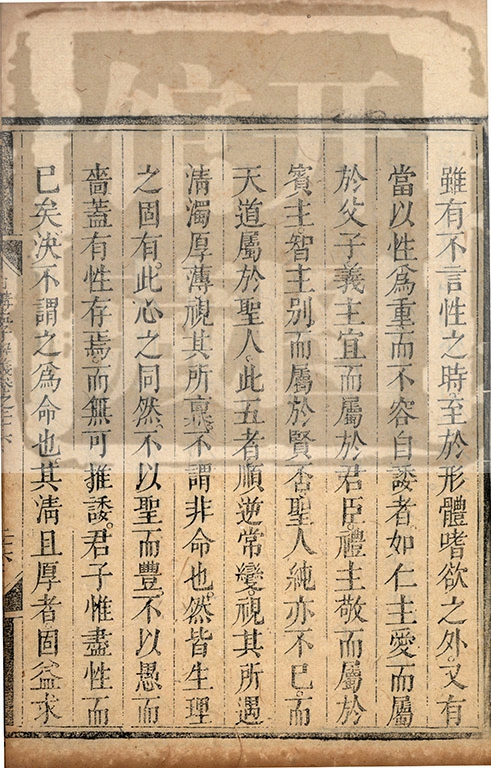 雖有不言性之時至於形體嗜欲之外又有
當以性爲重而不容自諉者如仁主愛而屬
於父子義主宜而屬於君臣禮主敬而屬於
賓主智主別而屬於賢否聖人純亦不已而
天道屬於聖人此五者順逆常變視其所遇
清濁厚薄視其所稟不謂非命也然皆生理
之固有此心之同然不以聖而豐不以愚而
嗇蓋有性存焉而無可推諉君子惟盡性而
已矣決不謂之爲命也其清且厚者固益求